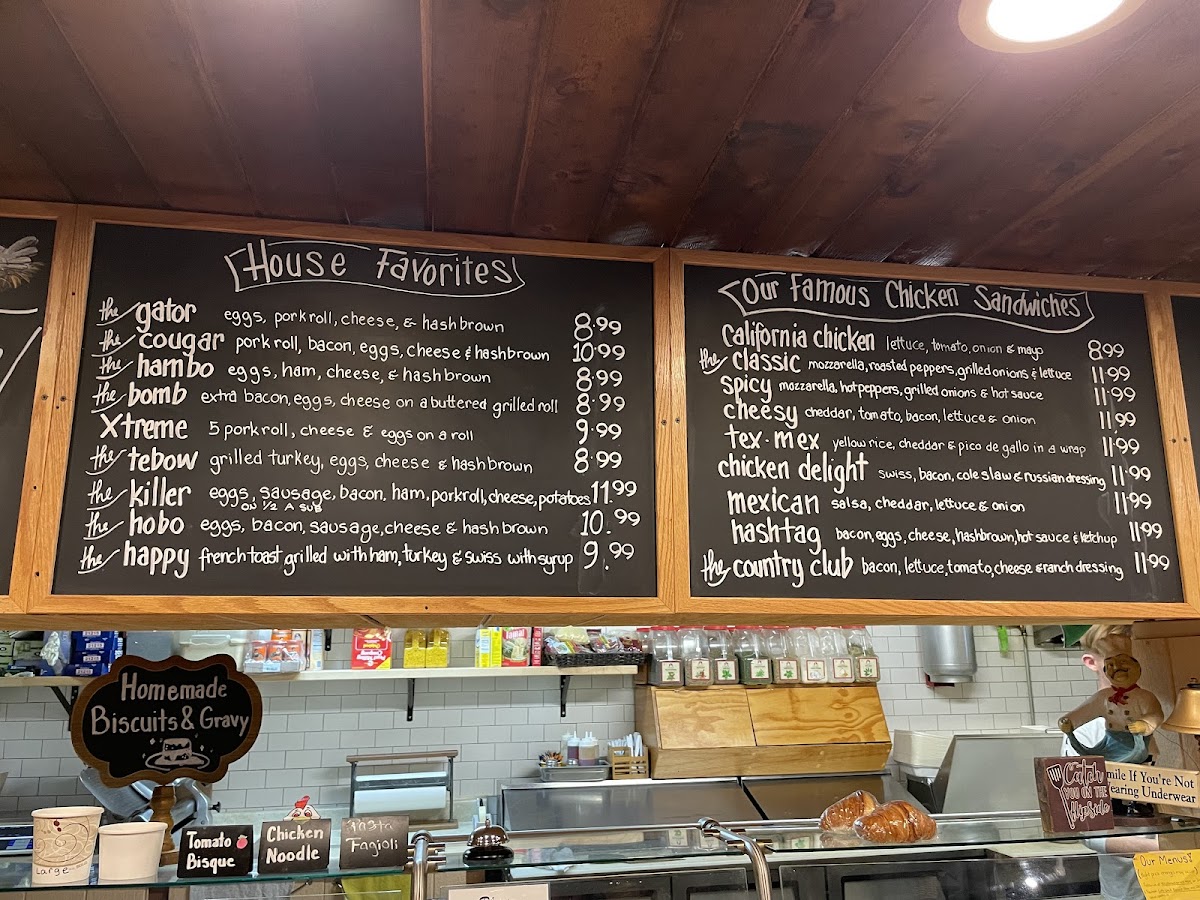 House Favorites
the gator eggs, porkroll, cheese, & hashbrown 8.99
the cougar porkroll, bacon, eggs, cheese & hashbrown 10.99
the hambo eggs, ham, cheese, & hashbrown 8.99
the bomb extra bacon, eggs, cheese on a buttered grilled roll 8.99
Xtreme 5 porkroll, cheese & eggs on a roll 9.99
the tebow grilled turkey, eggs, cheese & hashbrown 8.99
the killer eggs, sausage, bacon, ham, porkroll, cheese, potatoes 11.99
on 1/2 A SUB
the hobo eggs, bacon, sausage, cheese & hash brown 10.99
the happy french toast grilled with ham, turkey & swiss with syrup 9.99
Our Famous Chicken Sandwiches
California chicken lettuce, tomato, onion & mayo 8.99
the classic mozzarella, roasted peppers, grilled onions & lettuce 11.99
spicy mozzarella, hot peppers, grilled onions & hot sauce 11.99
cheesy cheddar, tomato, bacon, lettuce & onion 11.99
tex-mex yellow rice, cheddar & pico de gallo in a wrap 11.99
chicken delight swiss, bacon, cole slaw & russian dressing 11.99
mexican salsa, cheddar, lettuce & onion 11.99
hashtag bacon, eggs, cheese, hashbrown, hot sauce & ketchup 11.99
the country club bacon, lettuce, tomato, cheese & ranch dressing 11.99
Homemade
Biscuits & Gravy
Large
Tomato
Bisque
Chicken
Noodle
Pasta
Fagioli
Catch
YOU ON THE
flipside
mile If You're Not
earing Underwear
Our Menus!